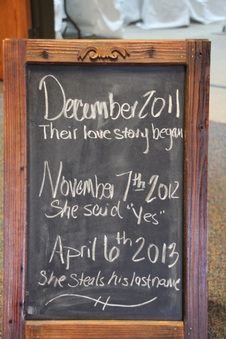 December 2011
Their love story began
November 7th 2012
She said "Yes"
April 6th 2013
She Steals his last name